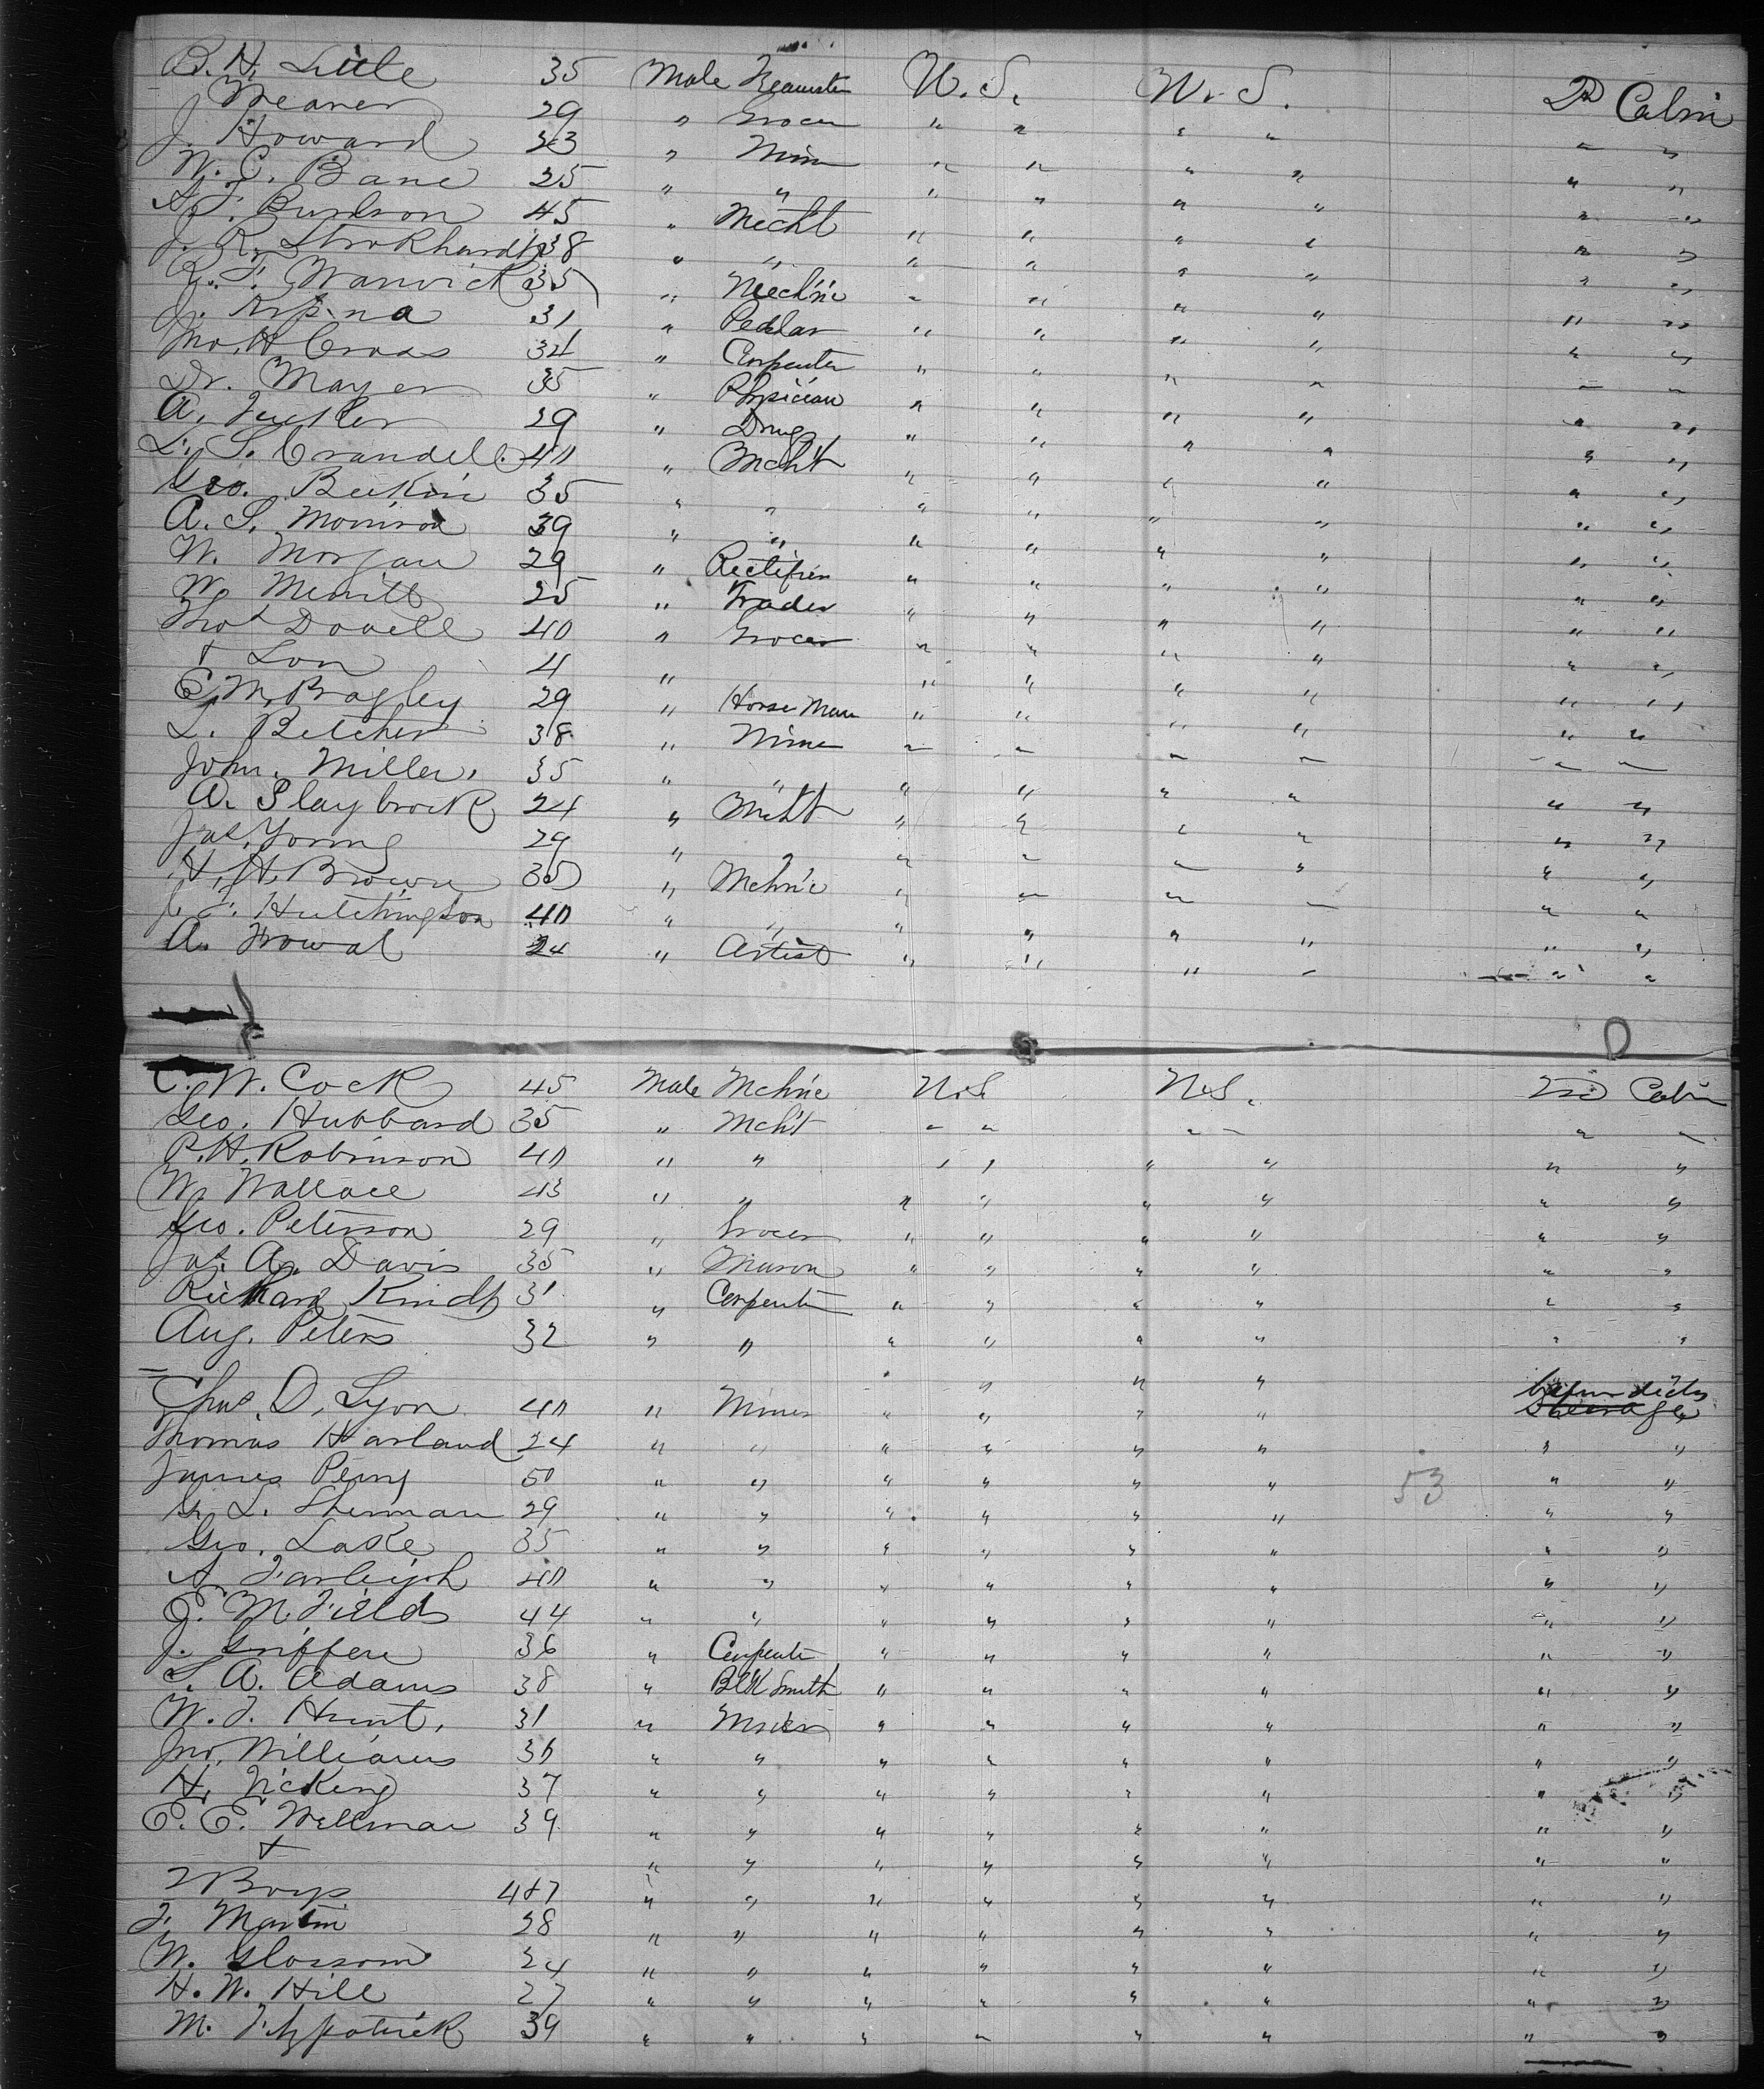 B. H. Little 35 Male Teamster U. S. U. S. 2D Cabin
J. Weaver 29 " Grocer " " " " " "
J. Howard 23 " Mine " " " " " "
W. C. Bane 25 " " " " " " " "
A. F. Burlson 45 " Mecht " " " " " "
J. R. Strokhardt 38 " " " " " " " "
R. F. Warwick 35 " Mech'ic " " " " " "
J. 31 " Pedlar " " " " " "
Jno. H Cross 34 " Carpenter " " " " " "
Dr. Mayer 35 " Physician " " " " " "
A. 29 " Drug " " " " " "
L. S. Crandell. 40 " Mcht " " " " " "
Geo. 35 " " " " " " " "
A. S. Morrison 39 " " " " " " " "
W. Morgan 29 " Rectifier " " " " " "
W. Merritt 25 " Trader " " " " " "
Thos Dovell 40 " Grocer " " " " " "
+ Son 4 " " " " " " "
C. M. Bragley 29 " Horse Man " " " " " "
L. Belcher 38 " Mine " " " " " "
John. Miller, 35 " " " " " " " "
A. Slaybrock 24 " Mcht " " " " " "
Jas. Young 29 " " " " " " "
H. H. Brown 35 " Mchn'c " " " " " "
C. F. Hutchington 40 " " " " " " " "
A. Trowal 24 " Artist " " " " " "
C. W. Cock 45 Male Mchn'c U.S U.S. 2nd Cabin
Geo. Hubbard 35 " Mcht " " " " " "
P. H. Robinson 40 " " " " " " " "
W. Wallace 43 " " " " " " " "
Geo. Peterson 29 " Grocer " " " " " "
Jas. A. Davis 35 " Mason " " " " " "
Richard Kindt 31 " Carpenter " " " " " "
Aug. Peters 32 " " " " " " " "
" " " "
Chas. D. Lyon 40 " Miner " " " " Steerage
Thomas Harland 24 " " " " " " " "
James Perry 50 " " " " " " 53 " "
G. L. Sherman 29 " " " " " " " "
Geo. Lake 35 " " " " " " " "
A. Farleigh 40 " " " " " " " "
J. M. Fields 44 " " " " " " " "
J. Griffen 36 " Carpenter " " " " " "
S. A. Adams 38 " Blk Smith " " " " " "
W. J. Hunt. 31 " Miner " " " " " "
Jno. Williams 30 " " " " " " " "
H. Vickery 37 " " " " " " " "
E. E. Wellman 39 " " " " " " " "
+ " " " " " " " "
2 Boys 4 + 7 " " " " " " " "
F. Martin 28 " " " " " " " "
W. Glossom 24 " " " " " " " "
H. W. Hill 27 " " " " " " " "
M. Fitzpatrick 39 " " " " " " " "